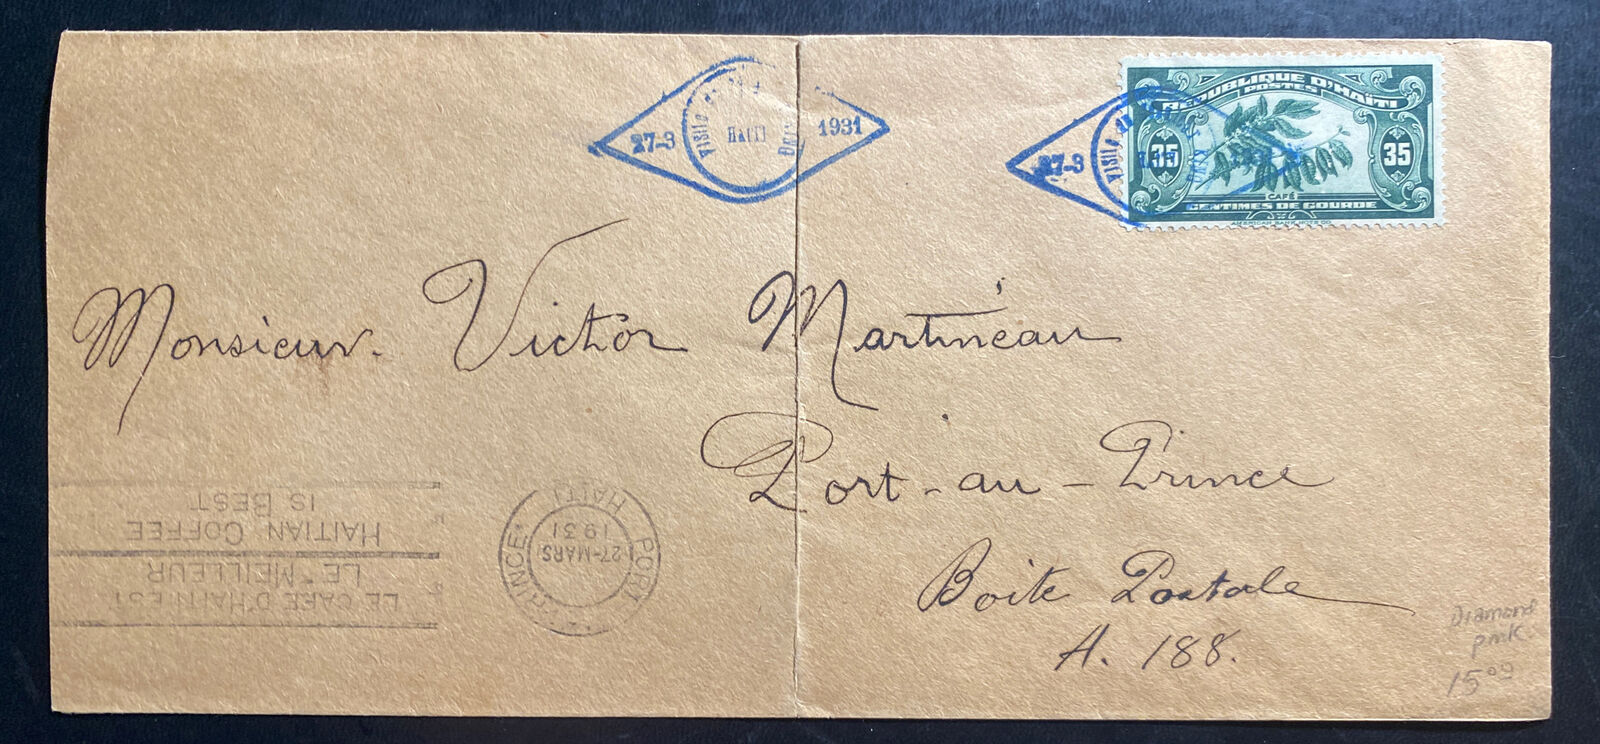 27-3
HAITI
1931
27-3
RÉPUBLIQUE D'HAÏTI
POSTES
35
35
CAFÉ
CENTIMES DE GOURDE
AMERICAN BANK NOTE CO.
Monsieur Victor Martineau
Port-au-Prince
Boite Postale
A. 188.
Diamond
pmk
15.00
PORT PRINCE
27-MARS
1931
HAITI
LE CAFE D'HAITI EST
LE MEILLEUR
HAITIAN COFFEE
IS BEST